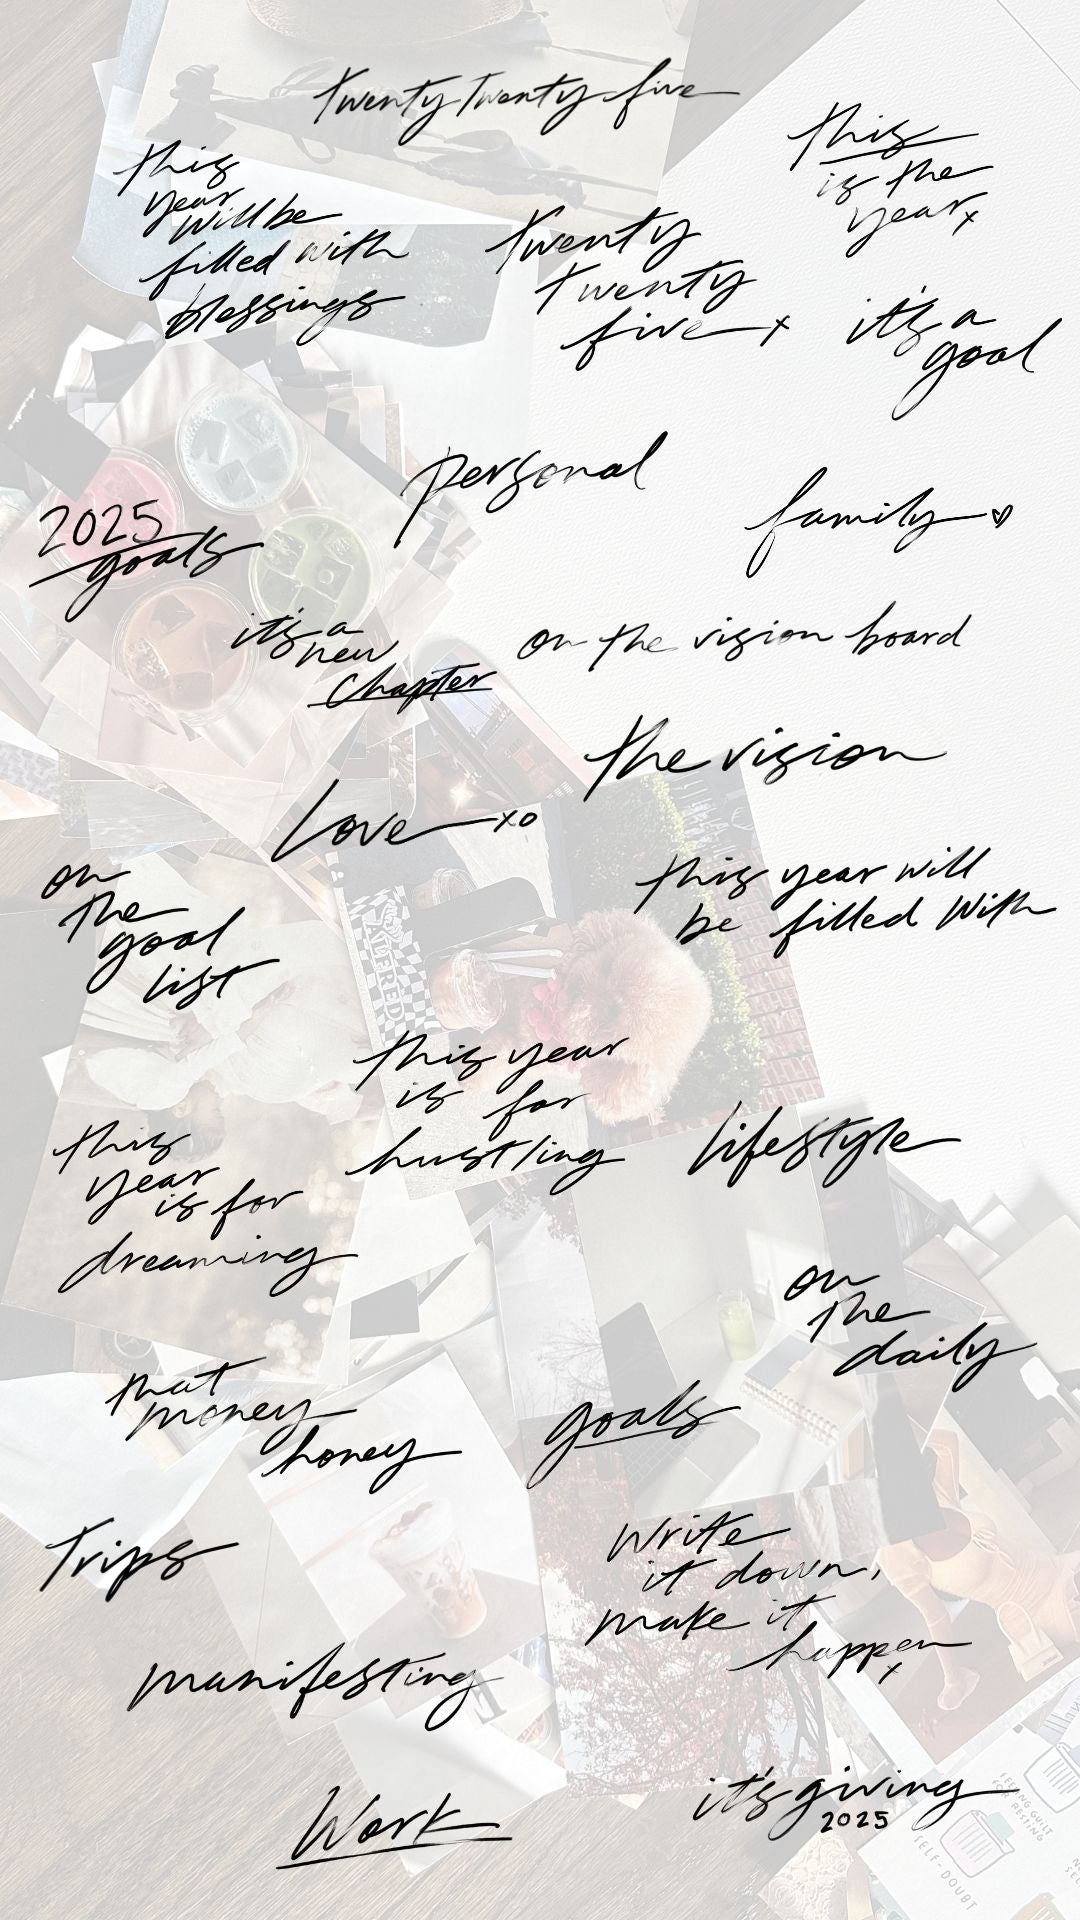 twenty twenty five
this
year
will be
filled with
blessings
this
is the
year x
twenty
twenty
five x
it's a
goal
personal
family
2025
goals
it's a
new
chapter
on the vision board
the vision
Love xo
on
the
goal
list
this year will
be filled with
ALFRED
this year
is for
hustling
this
year
is for
dreaming
lifestyle
on
the
daily
that
money
honey
goals
Trips
Write
it down,
make it
happen
x
manifesting
Work
it's giving
2025
GUILT
RESTING
SELF-DOUBT